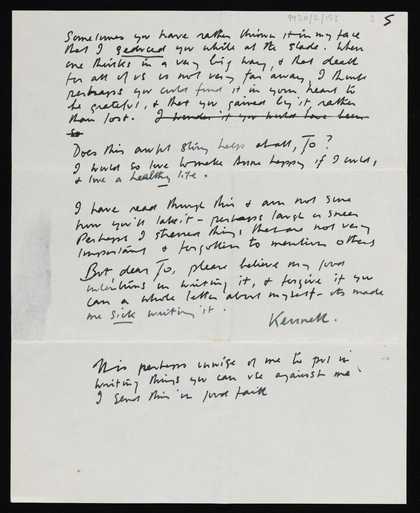 9920/2/155
5
Sometimes you have rather thrown it in my face
that I seduced you while at the Slade. When
one thinks in a very big way, & that death
for all of us is not very far away, I think
perhaps you could find it in your heart to
be grateful, & that you gained by it rather
than lost. I wonder if you would have been
so
Does this awful story help at all, Jo?
I would so love to make Anne happy if I could,
& live a healthy life.
I have read through this & am not sure
how you'll take it - perhaps laugh or sneer
Perhaps I stressed things that are not very
important & forgotten to mention others
But, dear Jo, please believe my good
intentions in writing it, & forgive it you
can a whole letter about myself - its made
me sick writing it.
Kenneth.
This perhaps unwise of me to put in
writing things you can use against me
I send this in good faith